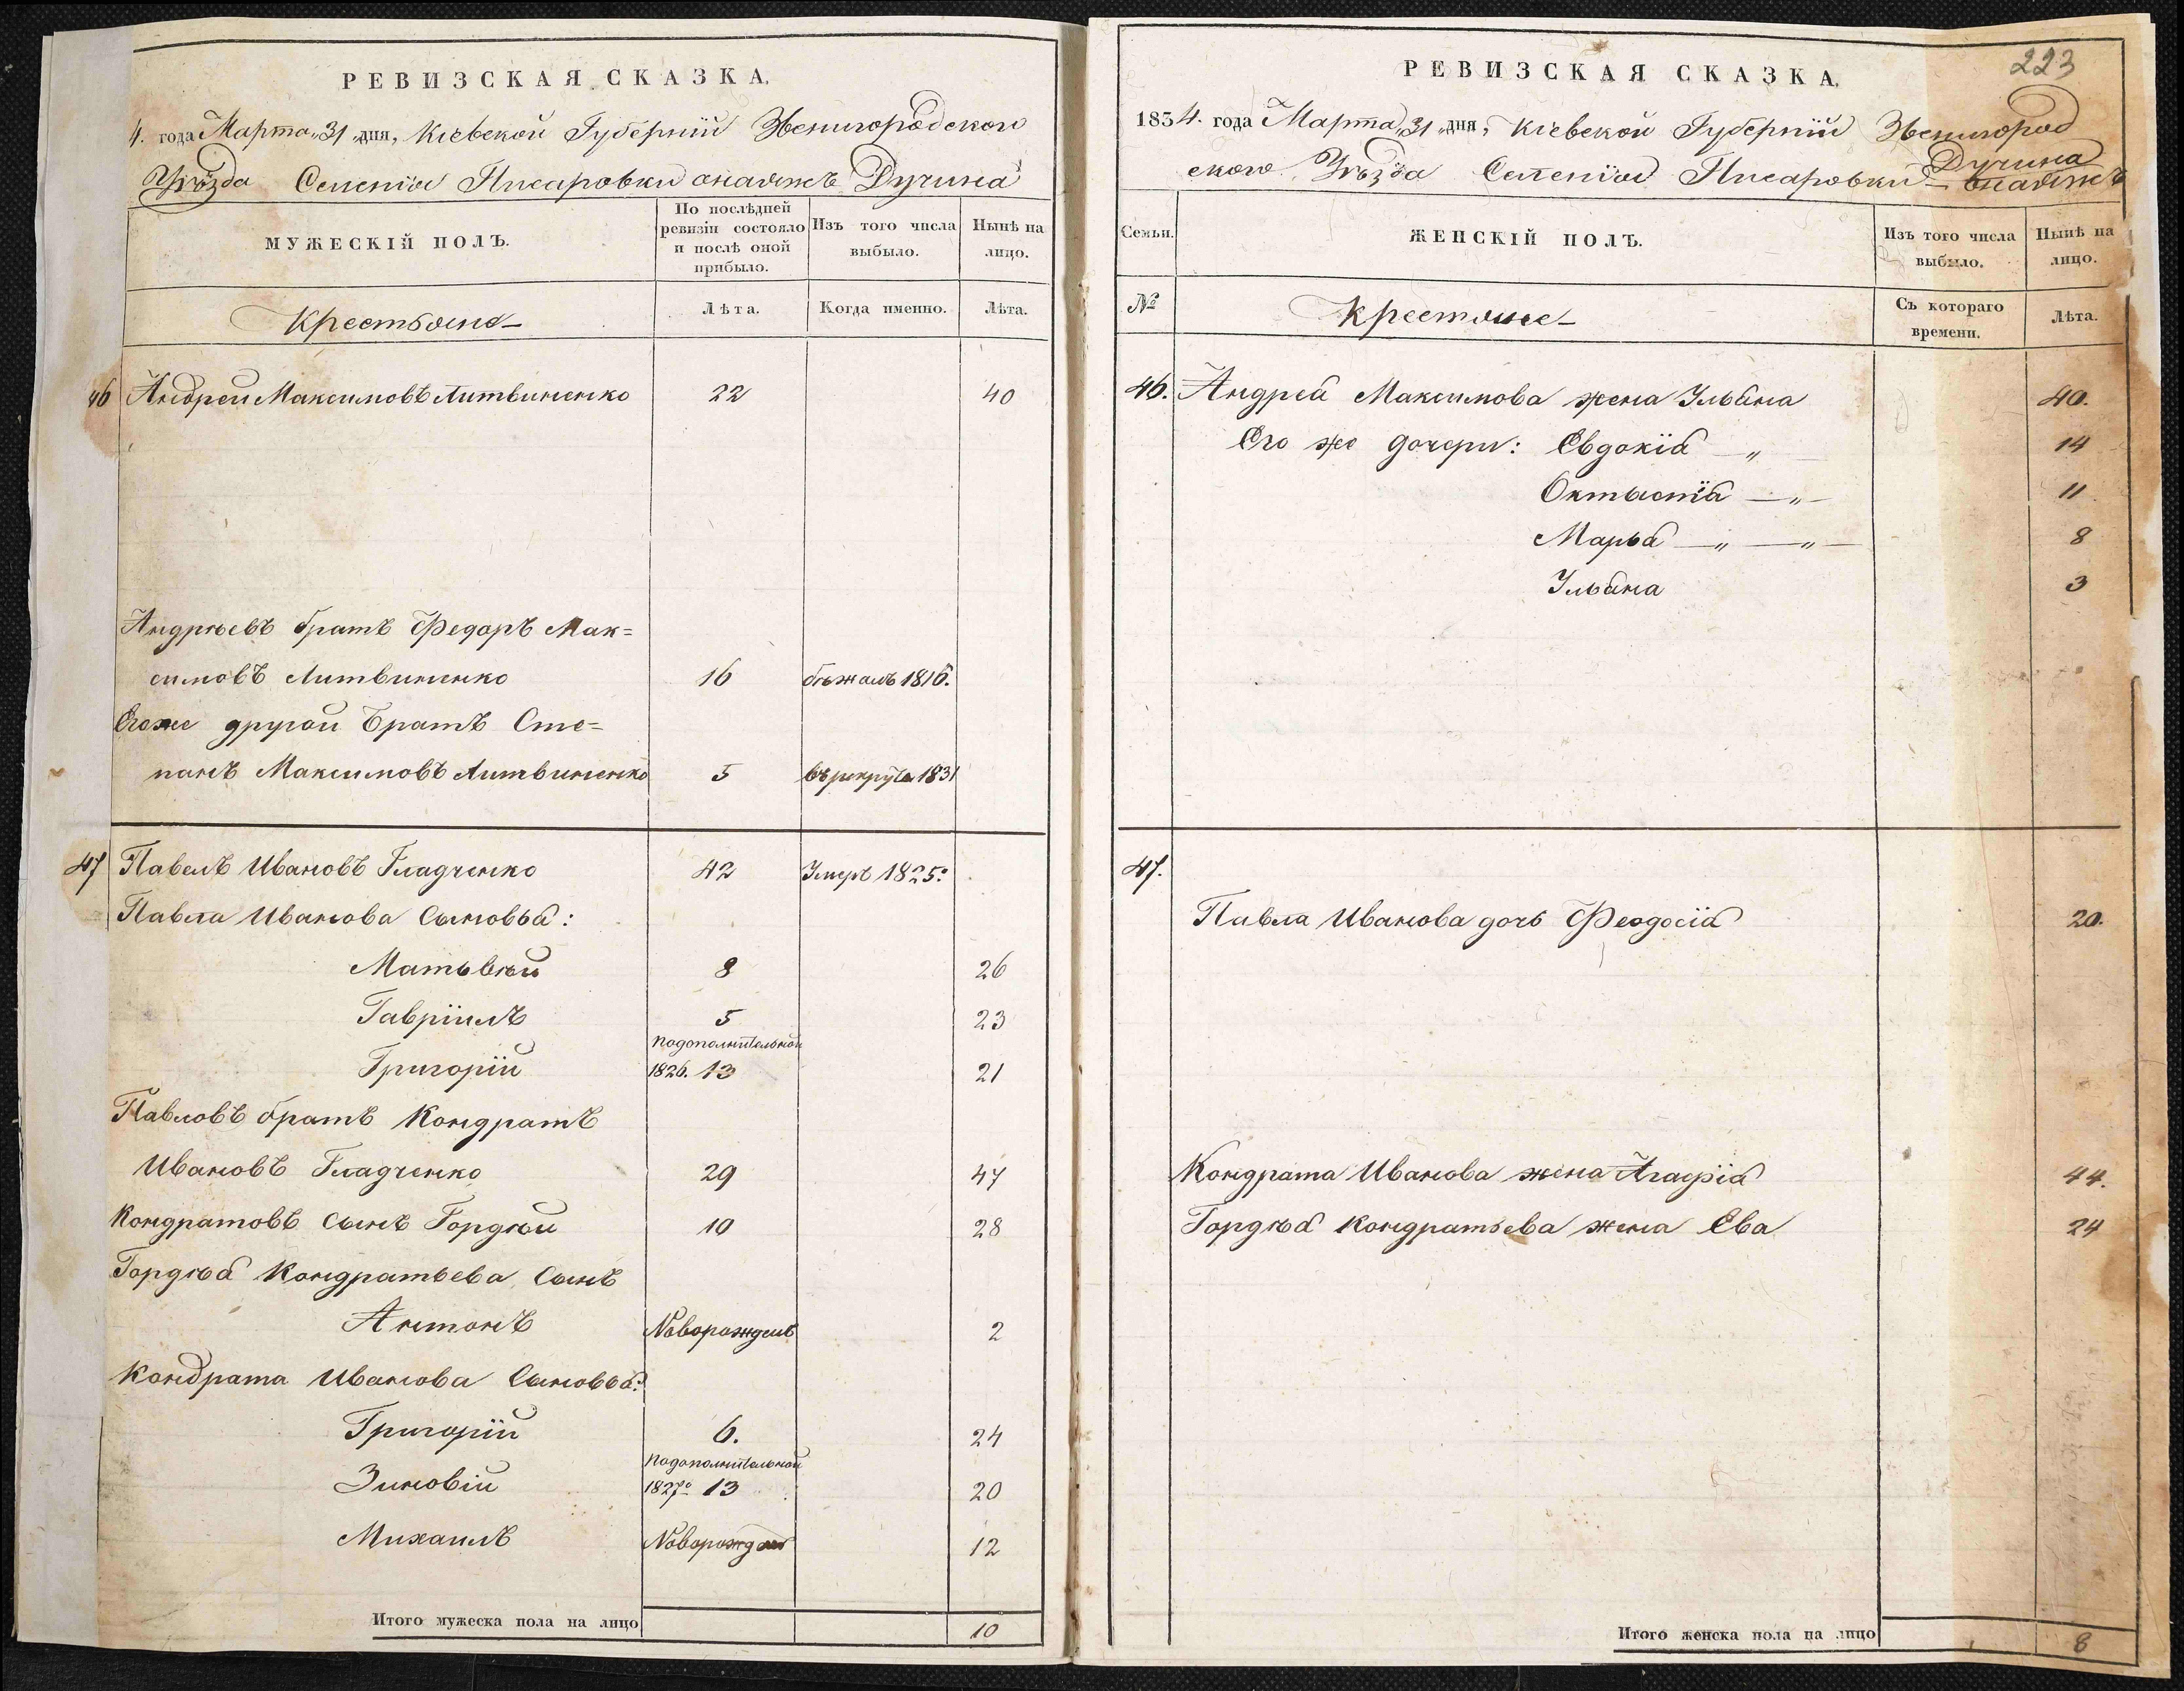 РЕВИЗСКАЯ СКАЗКА.
4. года Марта „31 „дня, Кіевской Губерніи Звенигородского
Уѣзда Селенія Писаровки онаяжъ Дучина
МУЖЕСКІЙ ПОЛЪ.
По послѣдней ревизіи состояло и послѣ оной прибыло.
Изъ того числа выбыло.
Нынѣ на лицо.
Крестьяне
Лѣта.
Когда именно.
Лѣта.
46 Андрей Максимовъ Литвиненко 22 40
Андрѣевъ братъ Федоръ Мак=
симовъ Литвиненко 16 бѣжалъ 1816.
Егоже другой братъ Сте=
панъ Максимовъ Литвиненко 5 въ рекруты 1831
47 Павелъ Ивановъ Гладченко 42 Умеръ 1825:
Павла Иванова Сыновья:
Матьвѣй 8 26
Гавріилъ 5 23
подополнительной
Григорій 1826. 13 21
Павловъ братъ Кондратъ
Ивановъ Гладченко 29 47
Кондратовъ сынъ Гордѣй 10 28
Гордѣя Кондратьева Сынъ
Антонъ Новорожденъ 2
Кондрата Иванова Сыновья:
Григорій 6. 24
подополнительной
Зиновій 1827º 13 20
Михаилъ Новорожден 12
Итого мужеска пола на лицо 10
223
РЕВИЗСКАЯ СКАЗКА.
1834. года Марта „31 „дня, Кіевской Губерніи Звенигород
ского Уѣзда Селенія Писаровки онаяжъ Дучина
Семьи.
ЖЕНСКІЙ ПОЛЪ.
Изъ того числа выбыло.
Нынѣ на лицо.
№
Крестяне
Съ котораго времени.
Лѣта.
46. Андрея Максимова жена Ульяна 40.
Его же дочери: Евдокія „ 14
Октьистія „ 11
Марья „ „ 8
Ульяна 3
47.
Павла Иванова дочь Феодосія 20.
Кондрата Иванова жена Агафія 44.
Гордѣя Кондратьева жена Ева 24
Итого женска пола на лицо 8